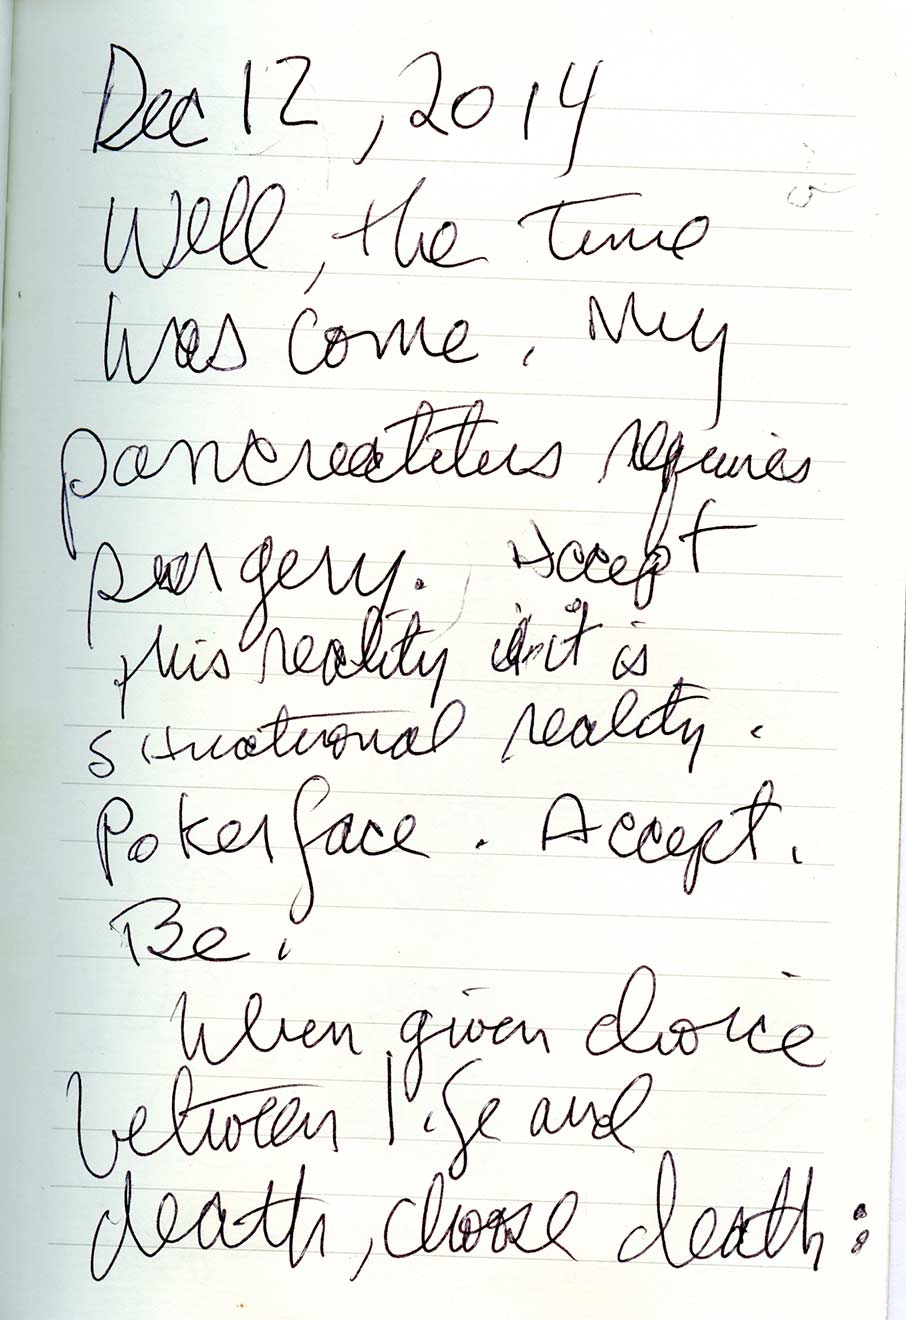 Dec 12, 2014
Well, the time
has come. My
pancreatitus requires
surgery. Accept
this reality it is
situational reality.
Poker face. Accept.
Be.
When given choice
between life and
death, choose death: